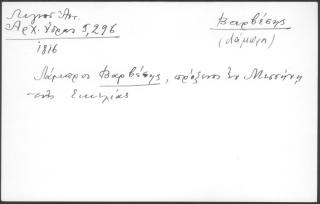 Λιγνὸς Ἀντ.
Ἀρχ. Ὕδρας 5,296
1816
Βαρβέσης
(Λάμπρο)
Λάμπρος Βαρβέσης, πρόξενος ἐν Μεσσήνῃ
τῆς Σικελίας